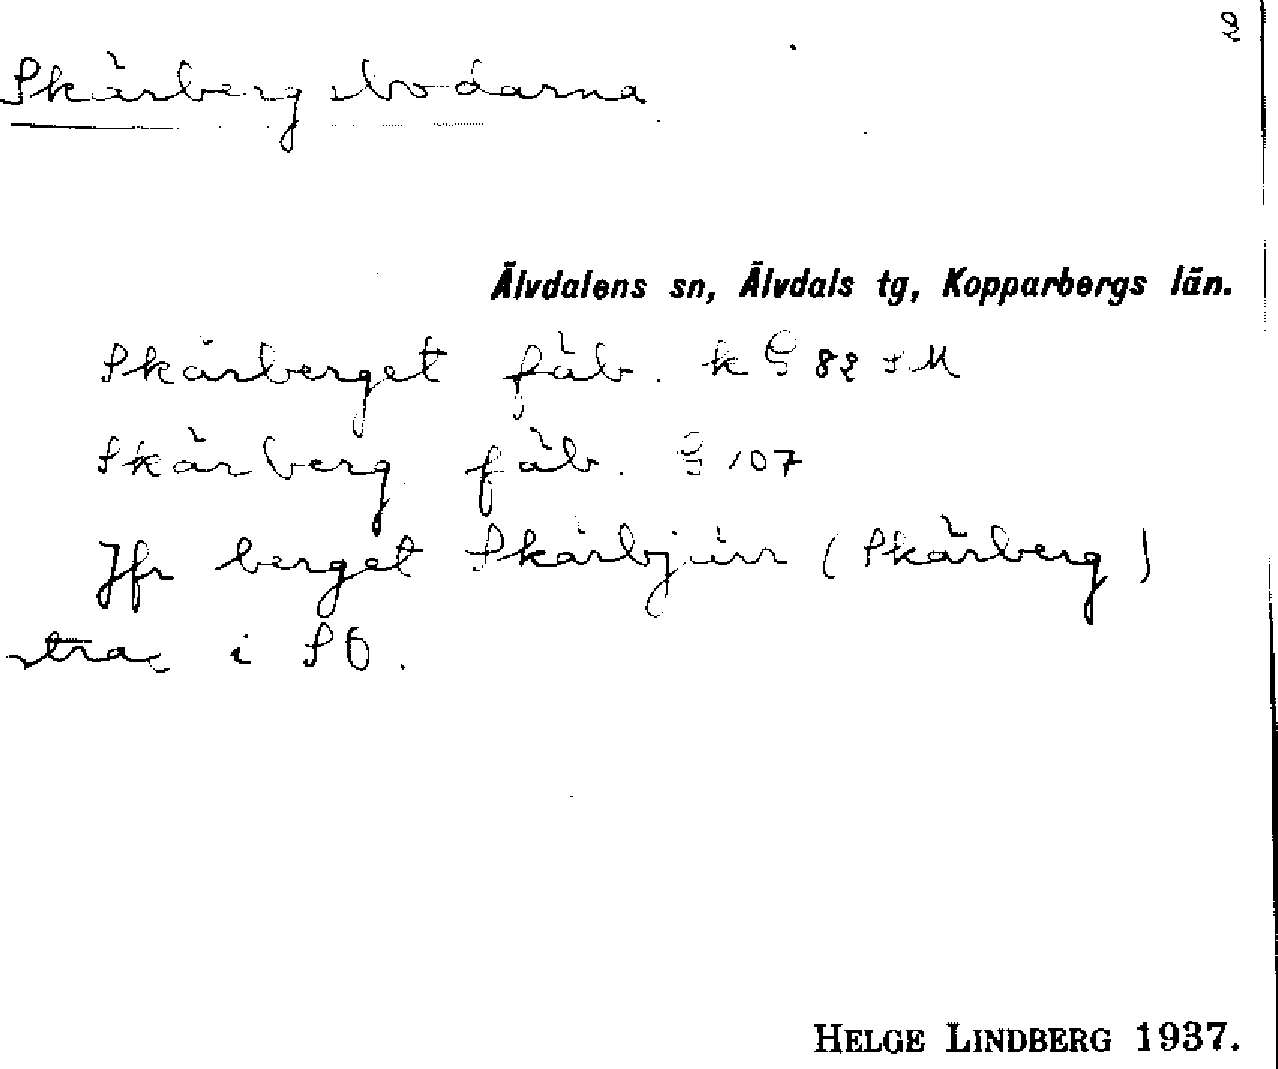 2
Skärbergsbodarna
Älvdalens sn, Älvdals tg, Kopparbergs län.
Skärberget fäb. k G 82 SM
Skärberg fäb. G 107
Jfr berget Skärbjärr (Skärberg)
strax i SO.
HELGE LINDBERG 1937.